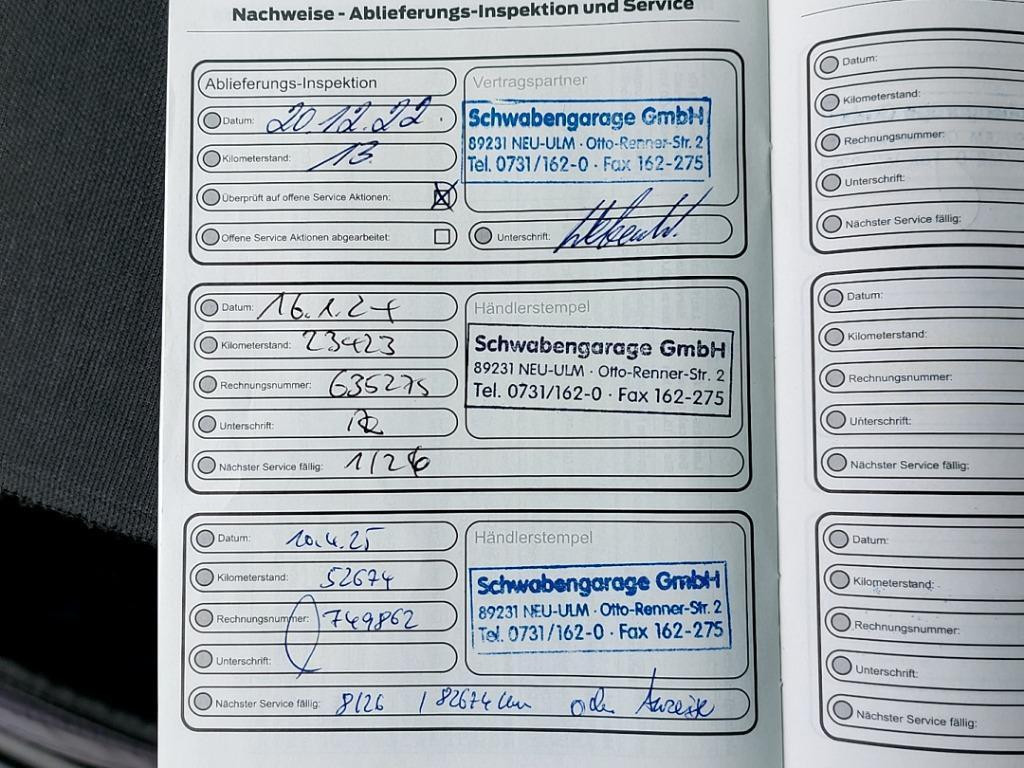 Nachweise - Ablieferungs-Inspektion und Service
Ablieferungs-Inspektion
Datum: 20.12.22.
Kilometerstand: 13
Überprüft auf offene Service Aktionen:
Offene Service Aktionen abgearbeitet:
Vertragspartner
Schwabengarage GmbH
89231 NEU-ULM · Otto-Renner-Str. 2
Tel. 0731/162-0 · Fax 162-275
Unterschrift:
Datum: 16.1.24
Kilometerstand: 23423
Rechnungsnummer: 635275
Unterschrift:
Nächster Service fällig: 1/26
Händlerstempel
Schwabengarage GmbH
89231 NEU-ULM · Otto-Renner-Str. 2
Tel. 0731/162-0 · Fax 162-275
Datum: 10.4.25
Kilometerstand: 52674
Rechnungsnummer: 749862
Unterschrift:
Nächster Service fällig: 8/26 / 82674 km oder Anzeige
Händlerstempel
Schwabengarage GmbH
89231 NEU-ULM · Otto-Renner-Str. 2
Tel. 0731/162-0 · Fax 162-275
Datum:
Kilometerstand:
Rechnungsnummer:
Unterschrift:
Nächster Service fällig:
Datum:
Kilometerstand:
Rechnungsnummer:
Unterschrift:
Nächster Service fällig:
Datum:
Kilometerstand:
Rechnungsnummer:
Unterschrift:
Nächster Service fällig: